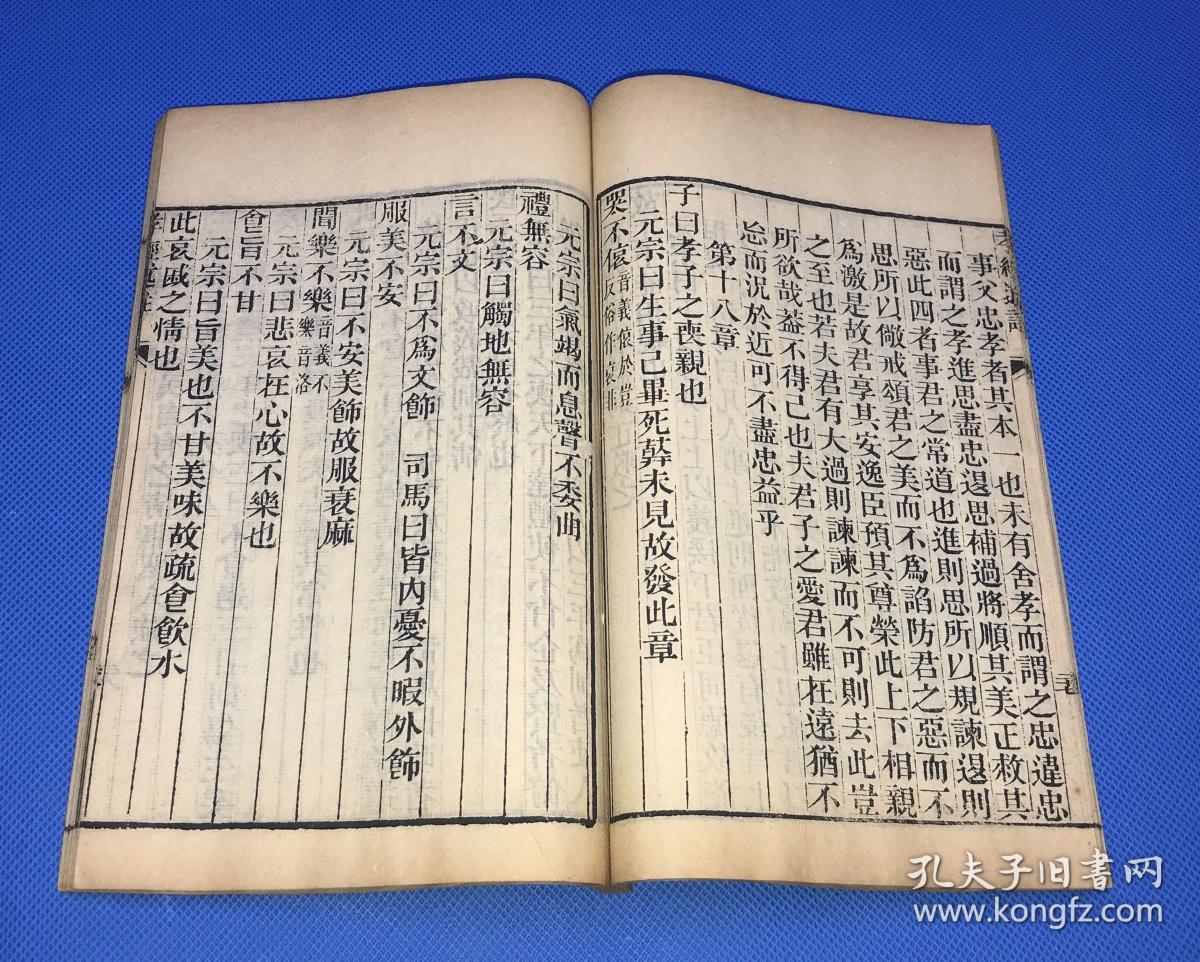 事父忠孝者其本一也未有舍孝而謂之忠違忠
而謂之孝進思盡忠退思補過將順其美正救其
惡此四者事君之常道也進則思所以規諫退則
思所以儆戒頌君之美而不為諂防君之惡而不
為激是故君享其安逸臣預其尊榮此上下相親
之至也若夫君有大過則諫諫而不可則去此豈
所欲哉葢不得已也夫君子之愛君雖在遠猶不
忘而況於近可不盡忠益乎
第十八章
子曰孝子之喪親也
元宗曰生事已畢死葬未見故發此章
哭不偯音義偯於豈反俗作哀非
元宗曰氣竭而息聲不委曲
禮無容
元宗曰觸地無容
言不文
元宗曰不為文飾 司馬曰皆內憂不暇外飾
服美不安
元宗曰不安美飾故服衰麻
聞樂不樂音義不樂音洛
元宗曰悲哀在心故不樂也
食旨不甘
元宗曰旨美也不甘美味故疏食飲水
此哀戚之情也
孝經述註
孔夫子旧书网
www.kongfz.com